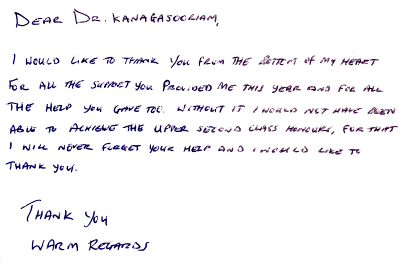 DEAR DR. KANAGASOORIAM,
I WOULD LIKE TO THANK YOU FROM THE BOTTOM OF MY HEART
FOR ALL THE SUPPORT YOU PROVIDED ME THIS YEAR AND FOR ALL
THE HELP YOU GAVE TOO. WITHOUT IT I WOULD NOT HAVE BEEN
ABLE TO ACHIEVE THE UPPER SECOND CLASS HONOURS, FOR THAT
I WILL NEVER FORGET YOUR HELP AND I WOULD LIKE TO
THANK YOU.
THANK YOU
WARM REGARDS